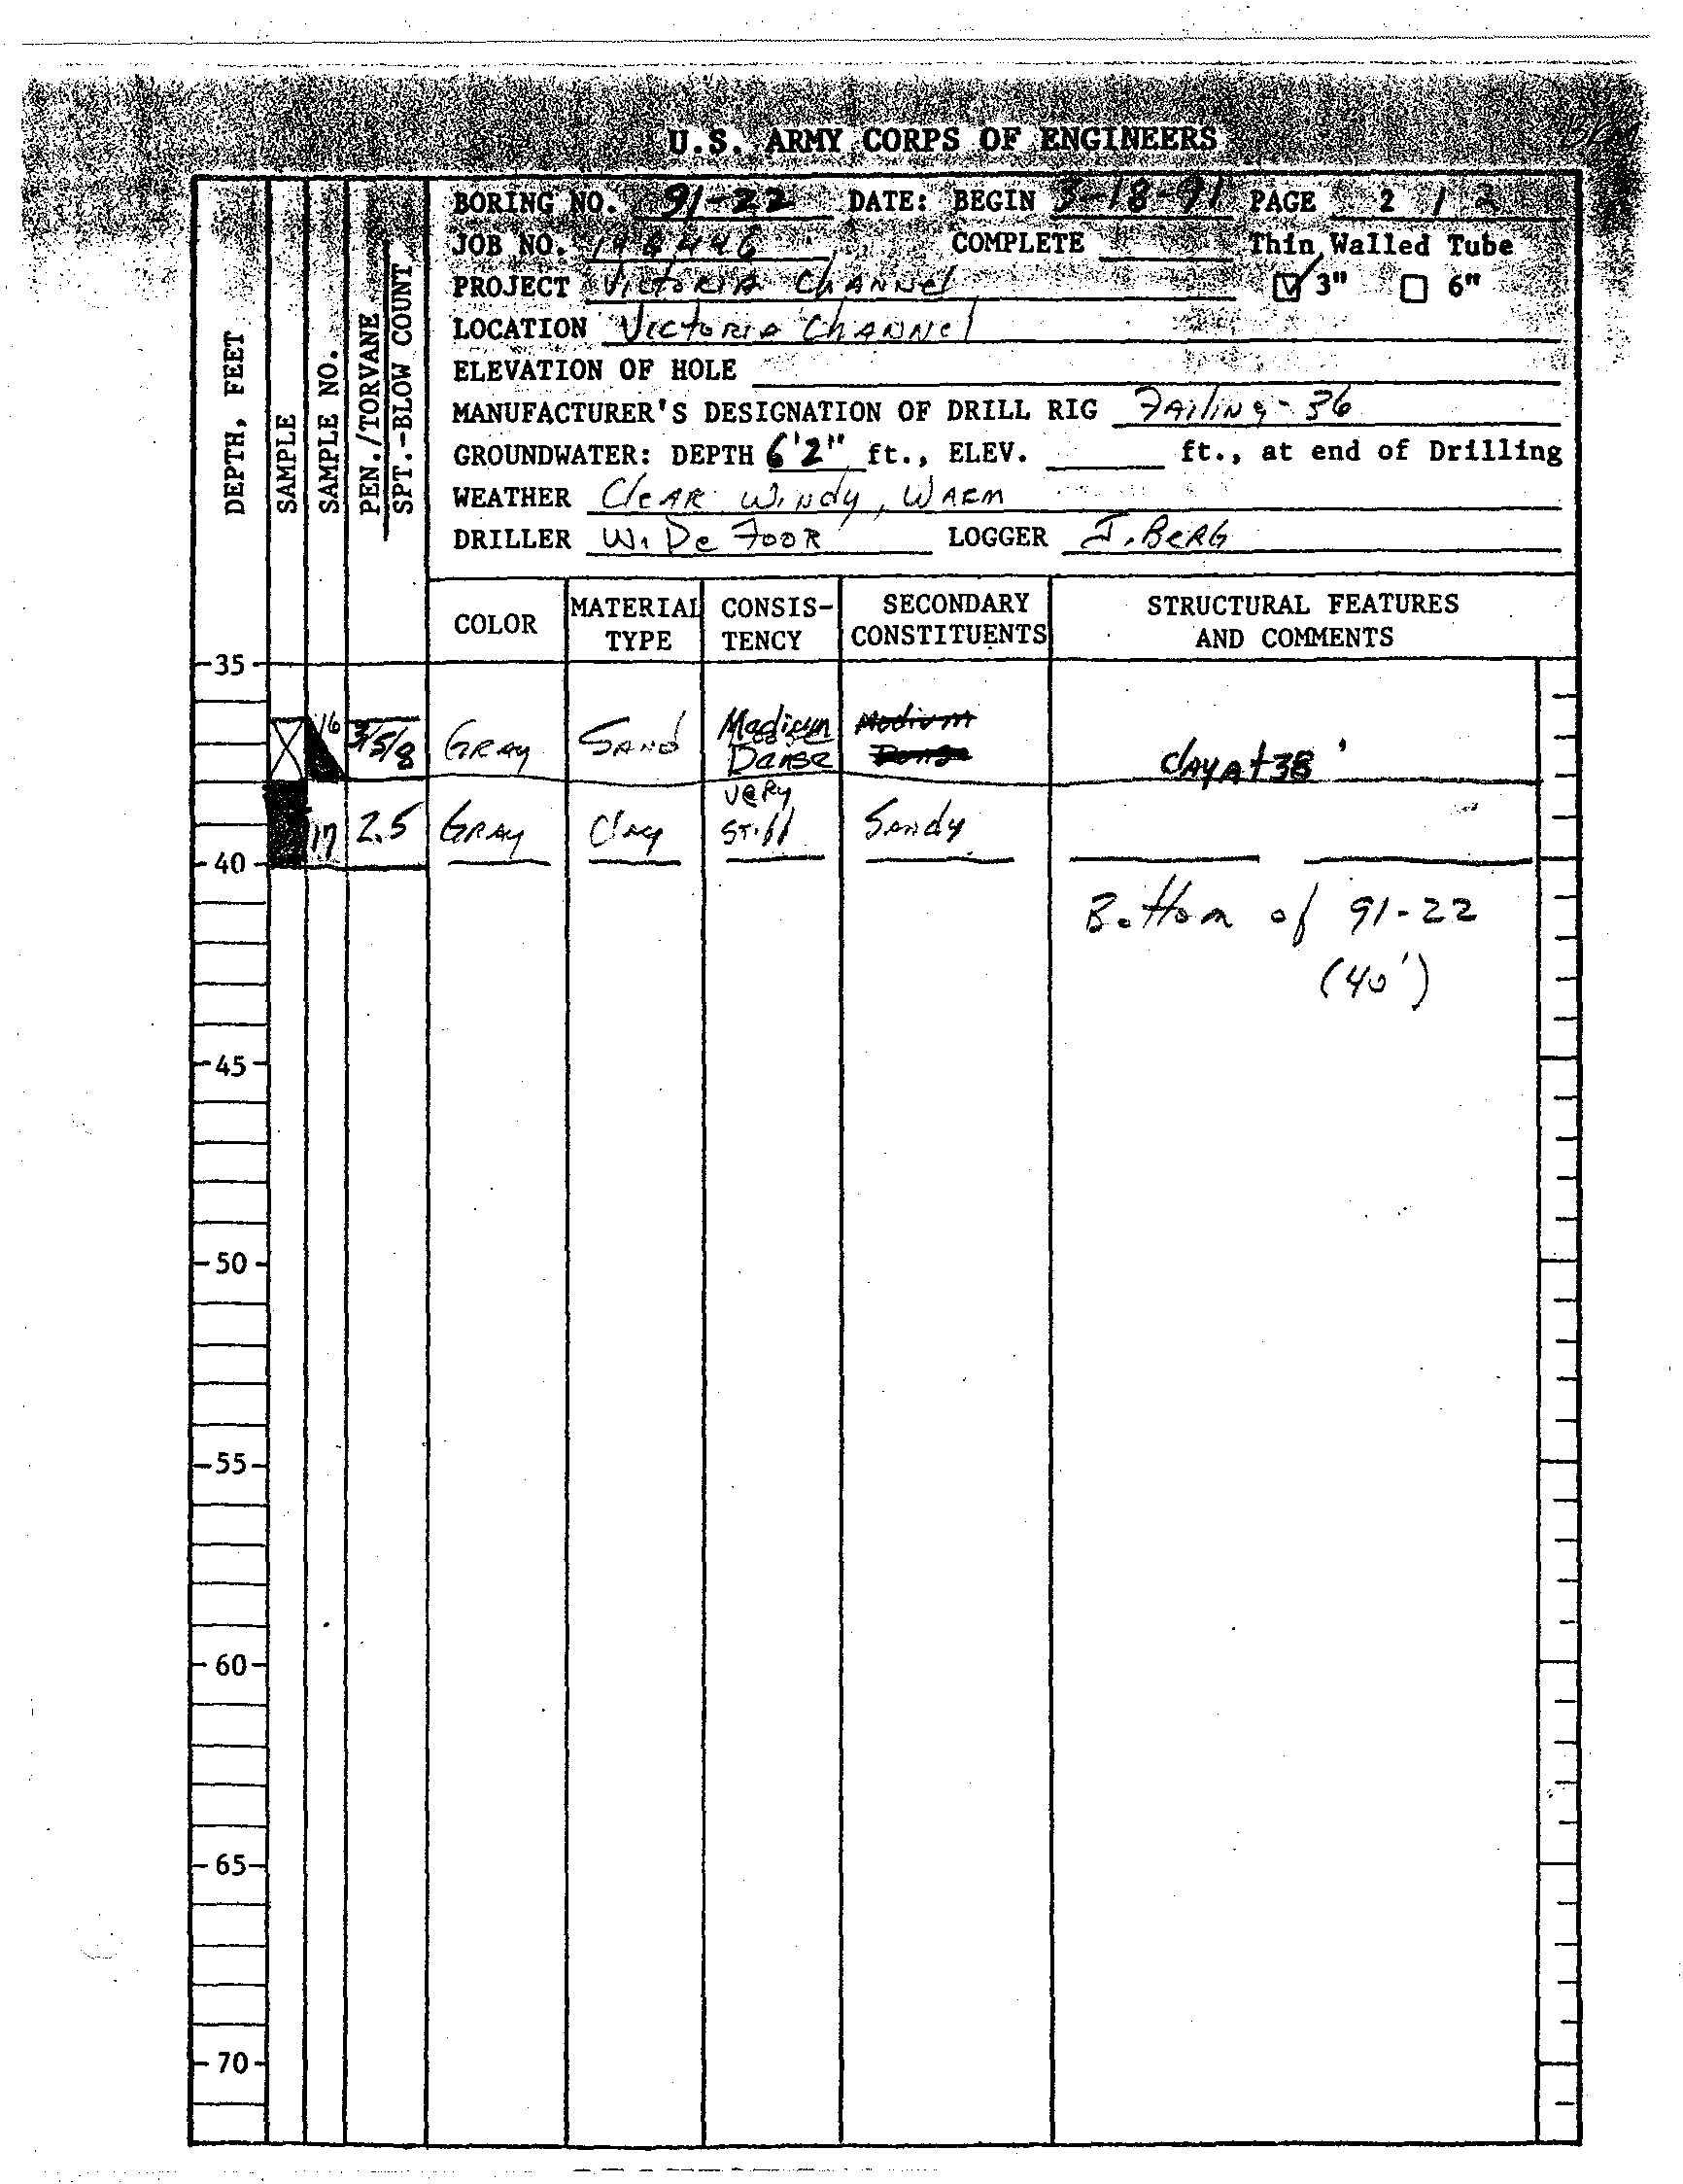 U.S. ARMY CORPS OF ENGINEERS
BORING NO. 91-22 DATE: BEGIN 3-18-91 PAGE 2 / 2
JOB NO. COMPLETE Thin Walled Tube
PROJECT Victoria Channel 3" 6"
LOCATION Victoria Channel
ELEVATION OF HOLE
MANUFACTURER'S DESIGNATION OF DRILL RIG Failing - 36
GROUNDWATER: DEPTH 6'2" ft., ELEV. ft., at end of Drilling
WEATHER Clear Windy, Warm
DRILLER W. De Foor LOGGER J. Berg
DEPTH, FEET
SAMPLE
SAMPLE NO.
PEN./TORVANE
SPT.-BLOW COUNT
COLOR MATERIAL TYPE CONSIS-TENCY SECONDARY CONSTITUENTS STRUCTURAL FEATURES AND COMMENTS
35
16 3/5/8 Gray Sand Medium Dense Medium Dense Clay At 38'
17 2.5 Gray Clay Very Stiff Sandy
40
Bottom of 91-22
(40')
45
50
55
60
65
70